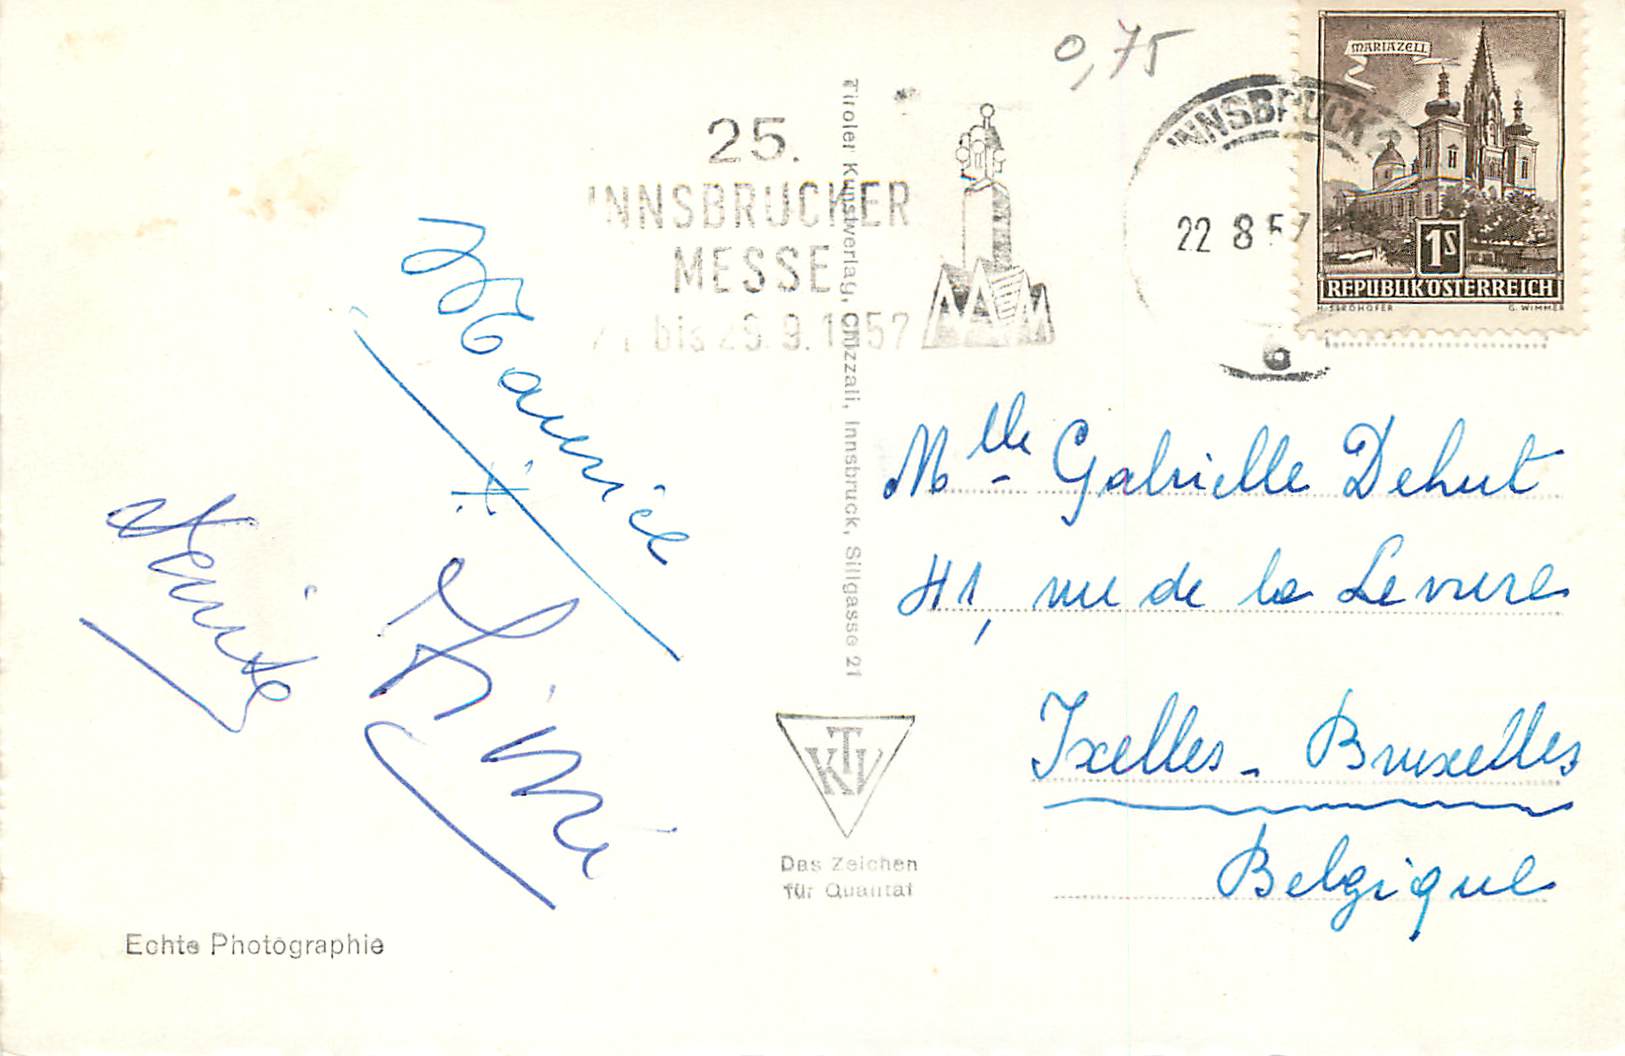 0,75
25.
INNSBRUCKER
MESSE
bis 29.9.1957
INNSBRUCK 2
22 8 57
6
MARIAZELL
1S
REPUBLIK ÖSTERREICH
G. WIMMER
Tiroler Kunstverlag, Chizzali, Innsbruck, Sillgasse 21
Maurice
Mlle Gabrielle Dehut
41, rue de la Levure
Ixelles - Bruxelles
Belgique
TKV
Das Zeichen
für Qualität
Echte Photographie